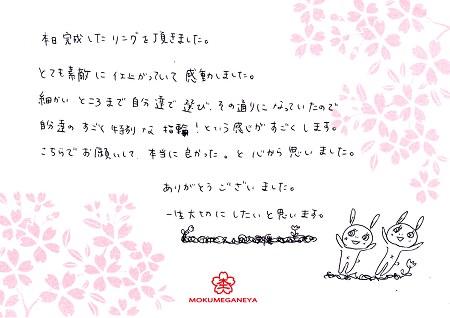 本日完成したリングを頂きました。
とても素敵に仕上がっていて感動しました。
細かいところまで自分達で選び、その通りになっていたので
自分達のすごく特別な指輪！という感じがすごくします。
こちらでお願いして、本当に良かった。と心から思いました。
ありがとうございました。
一生大切にしたいと思います。
MOKUMEGANEYA